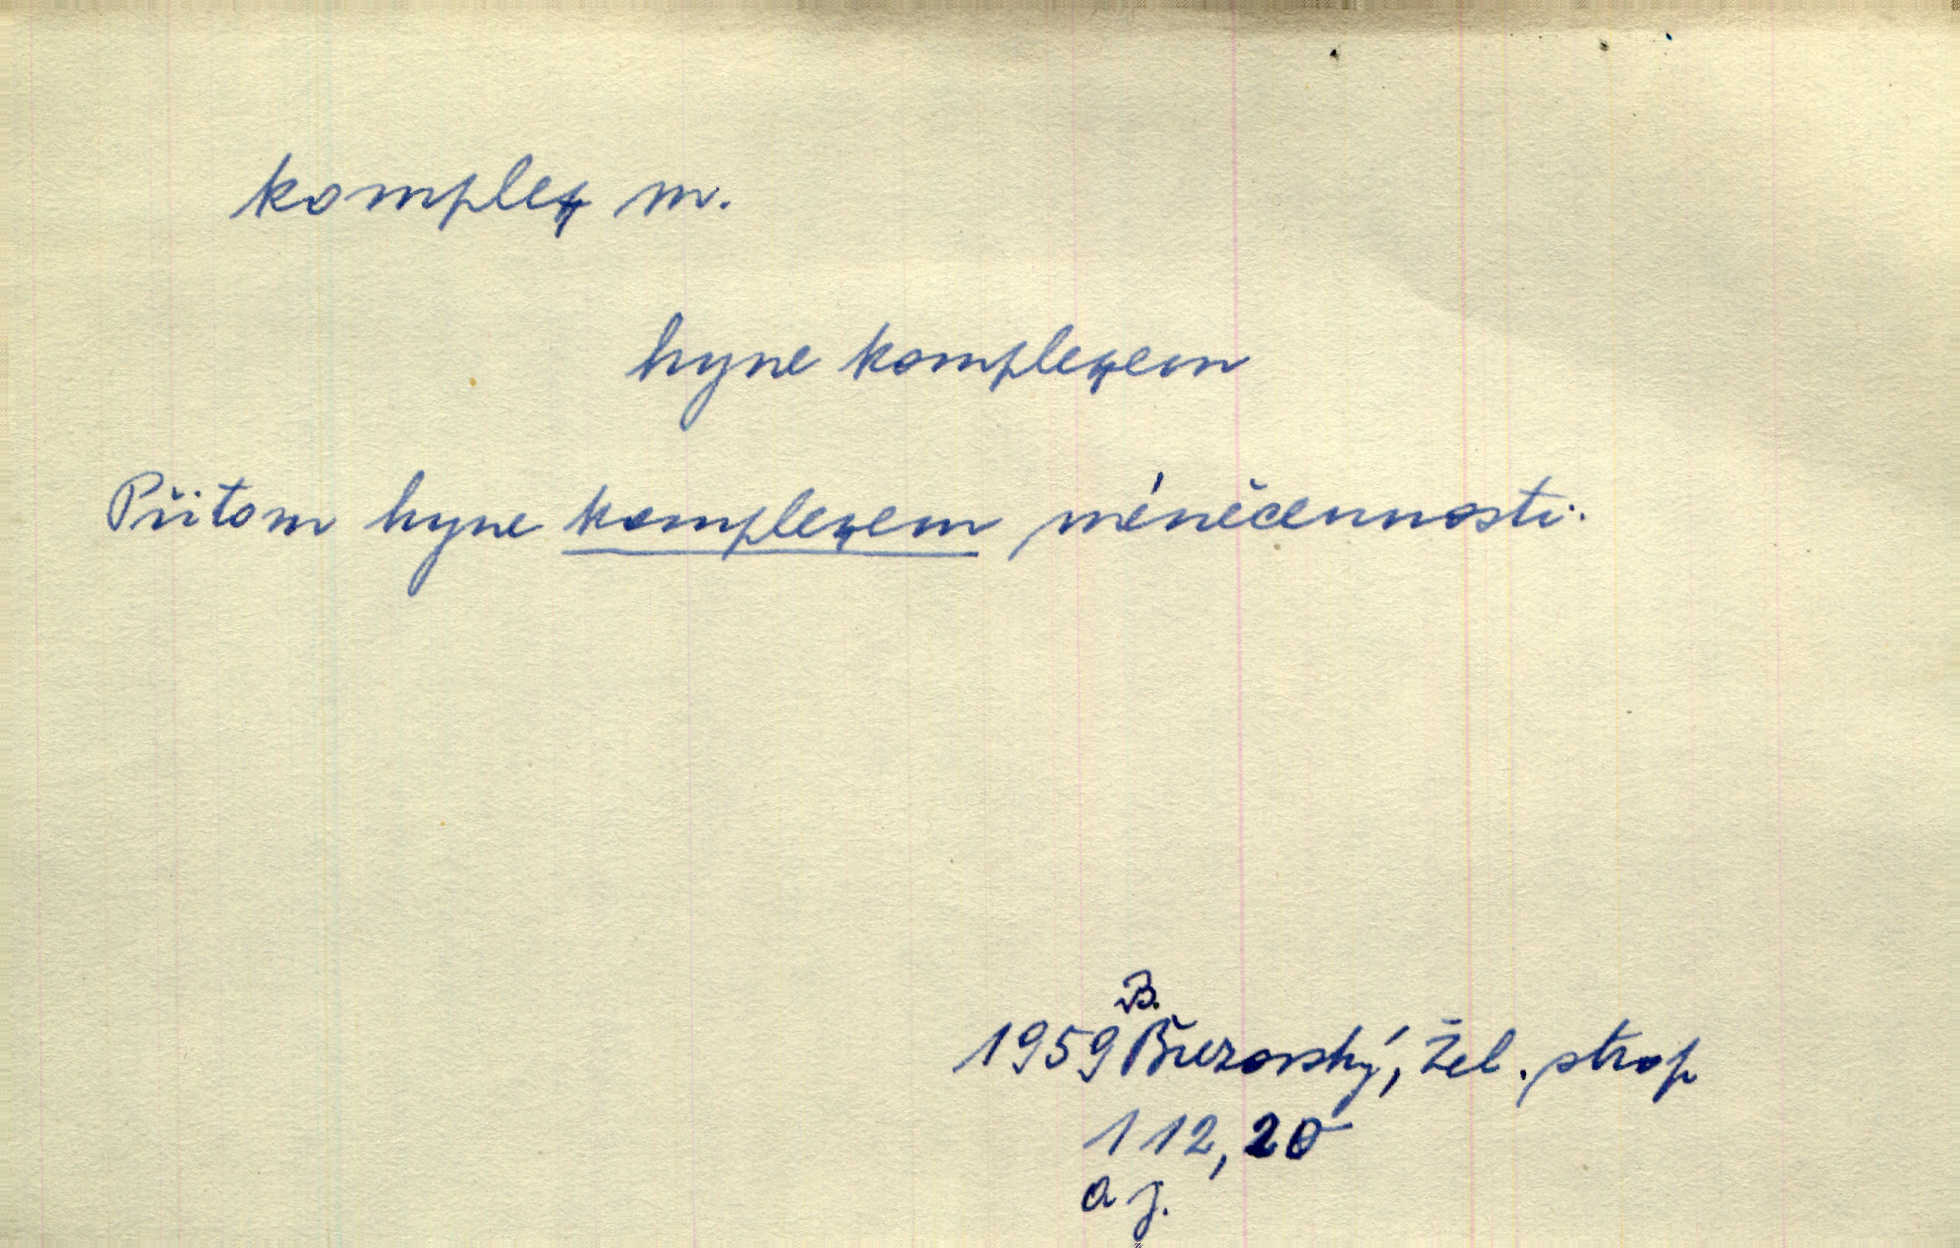 komplex m.
hyne komplexem
Přitom hyne komplexem méněcennosti.
B.
1959 Březovský, Žel. strop
112, 20
a j.